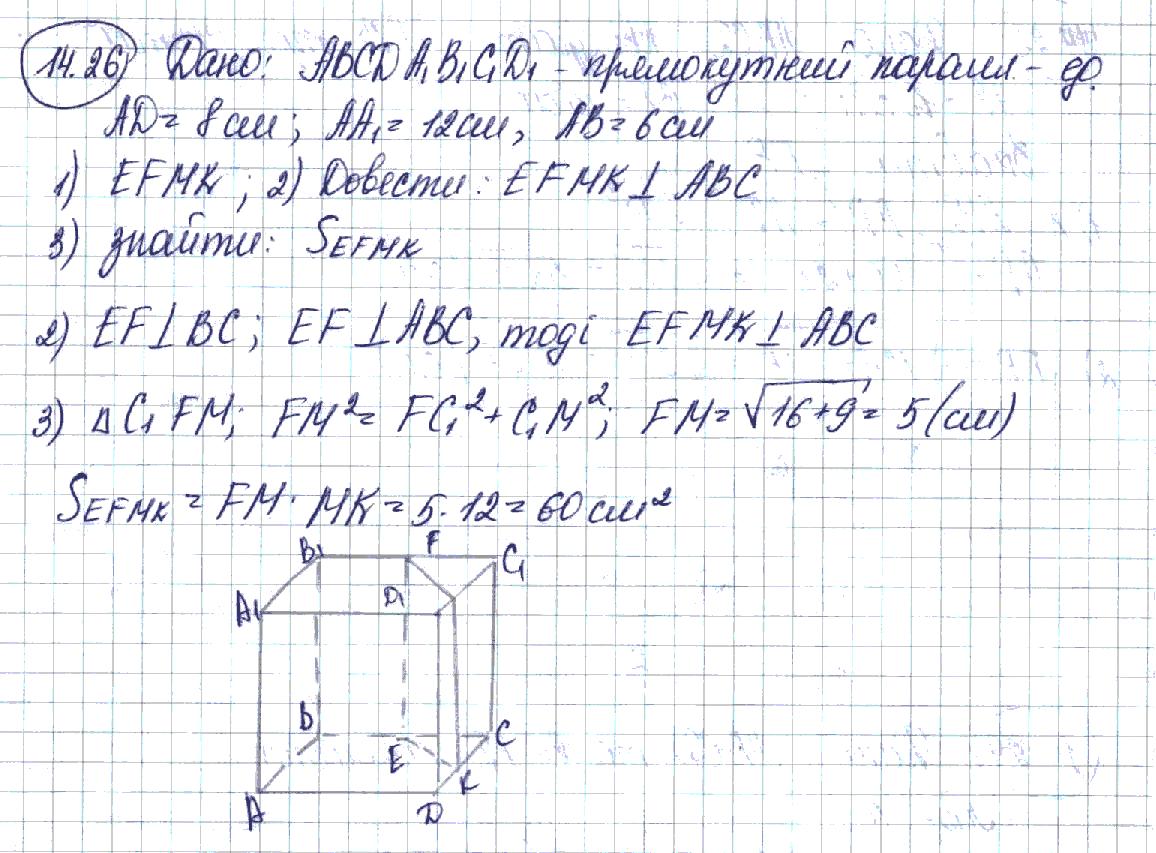 14.26 Дано: ABCDA₁B₁C₁D₁ - прямокутний парал-д.
AD = 8 см; AA₁ = 12 см, AB = 6 см
1) EFMK; 2) Довести: EFMK ⊥ ABC
3) знайти: S_EFMK
2) EF ⊥ BC; EF ⊥ ABC, тоді EFMK ⊥ ABC
3) △ C₁FM; FM² = FC₁² + C₁M²; FM = √16+9 = 5 (см)
S_EFMK = FM · MK = 5 · 12 = 60 см²
B₁ F C₁
A₁ D₁
B E C
K
A D